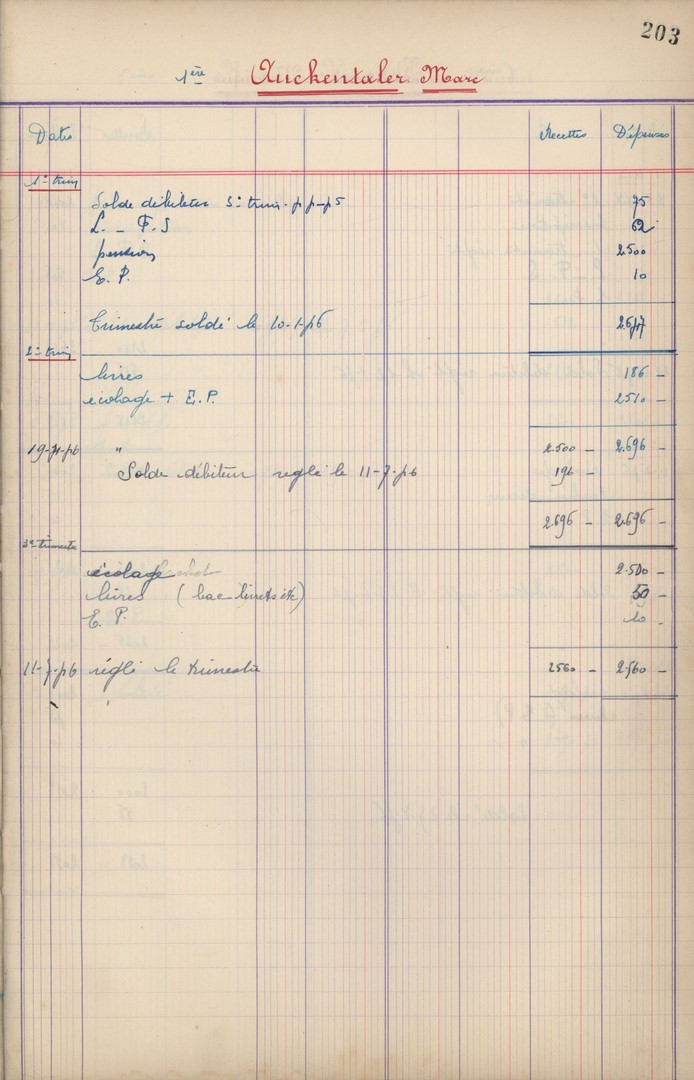 203
1ère Auckentaler Marc
Dates Recettes Dépenses
1er trim
Solde débiteur 3e trim. 75
L. _ F.S 62
pension 2.500
E. P. 10
Trimestre soldé le 10-1-46 2.647
2e trim
livres 186 -
écolage + E.P. 2510 -
" 2.500 - 2.696 -
Solde débiteur réglé le 11-7-46 196 -
2.696 - 2.696 -
3e trimestre
écolage 2.500 -
livres (bac livrets etc) 50 -
E. P. 10 -
11-7-46 réglé le trimestre 2560 - 2.560 -